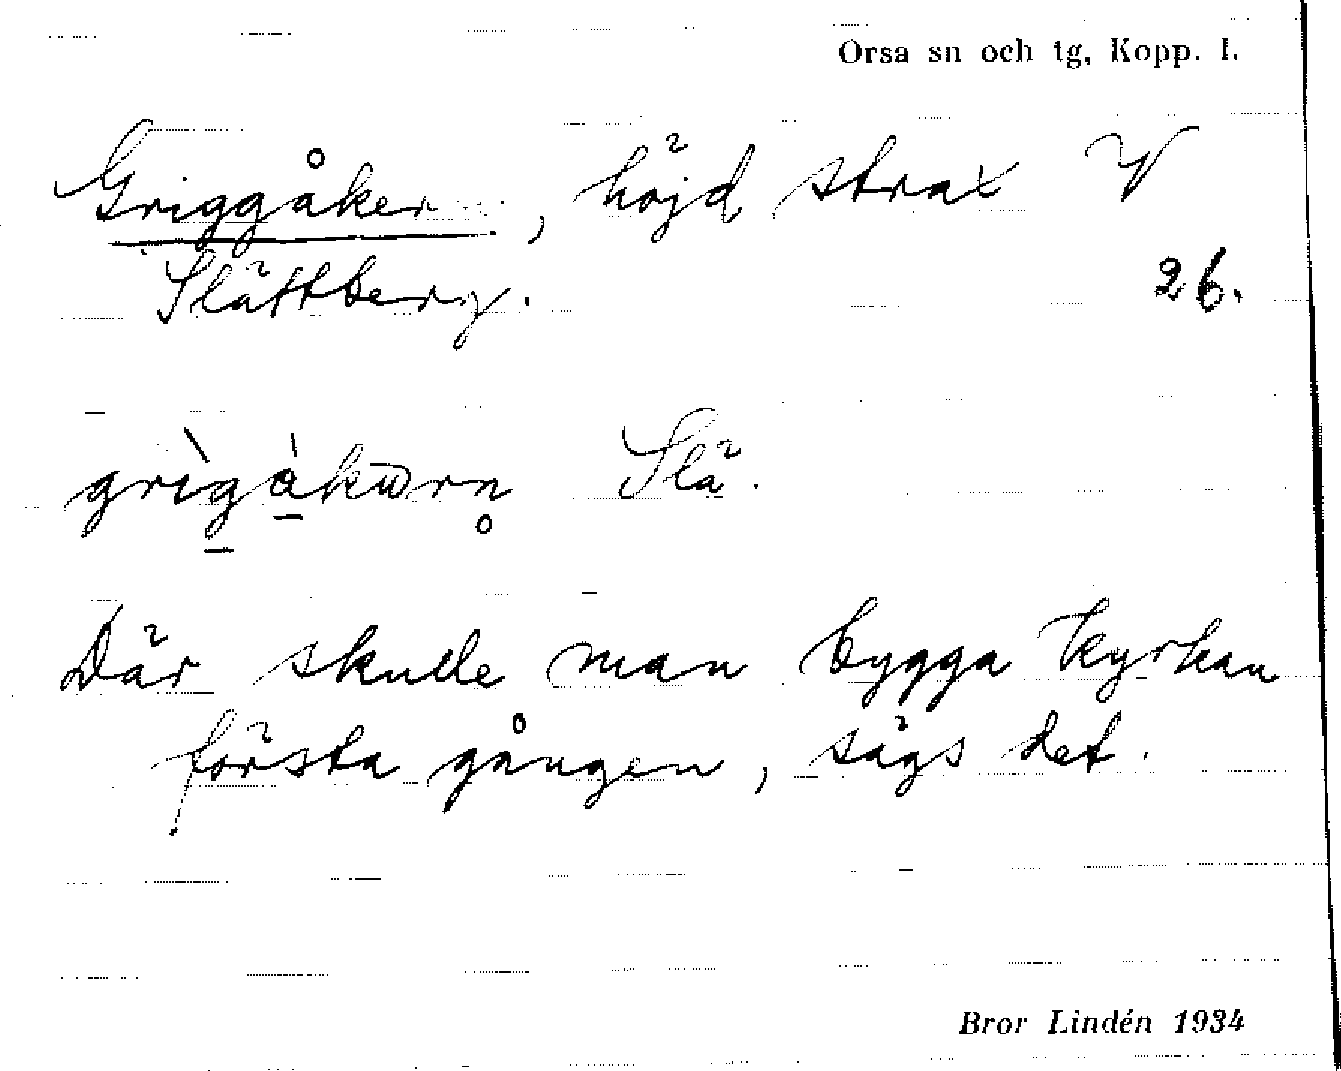 Orsa sn och tg, Kopp. l.
Griggåker, höjd strax V
Slättberg. 26.
grìgàkwrn̥ Slä.
Där skulle man bygga kyrkan
första gången, sägs det.
Bror Lindén 1934